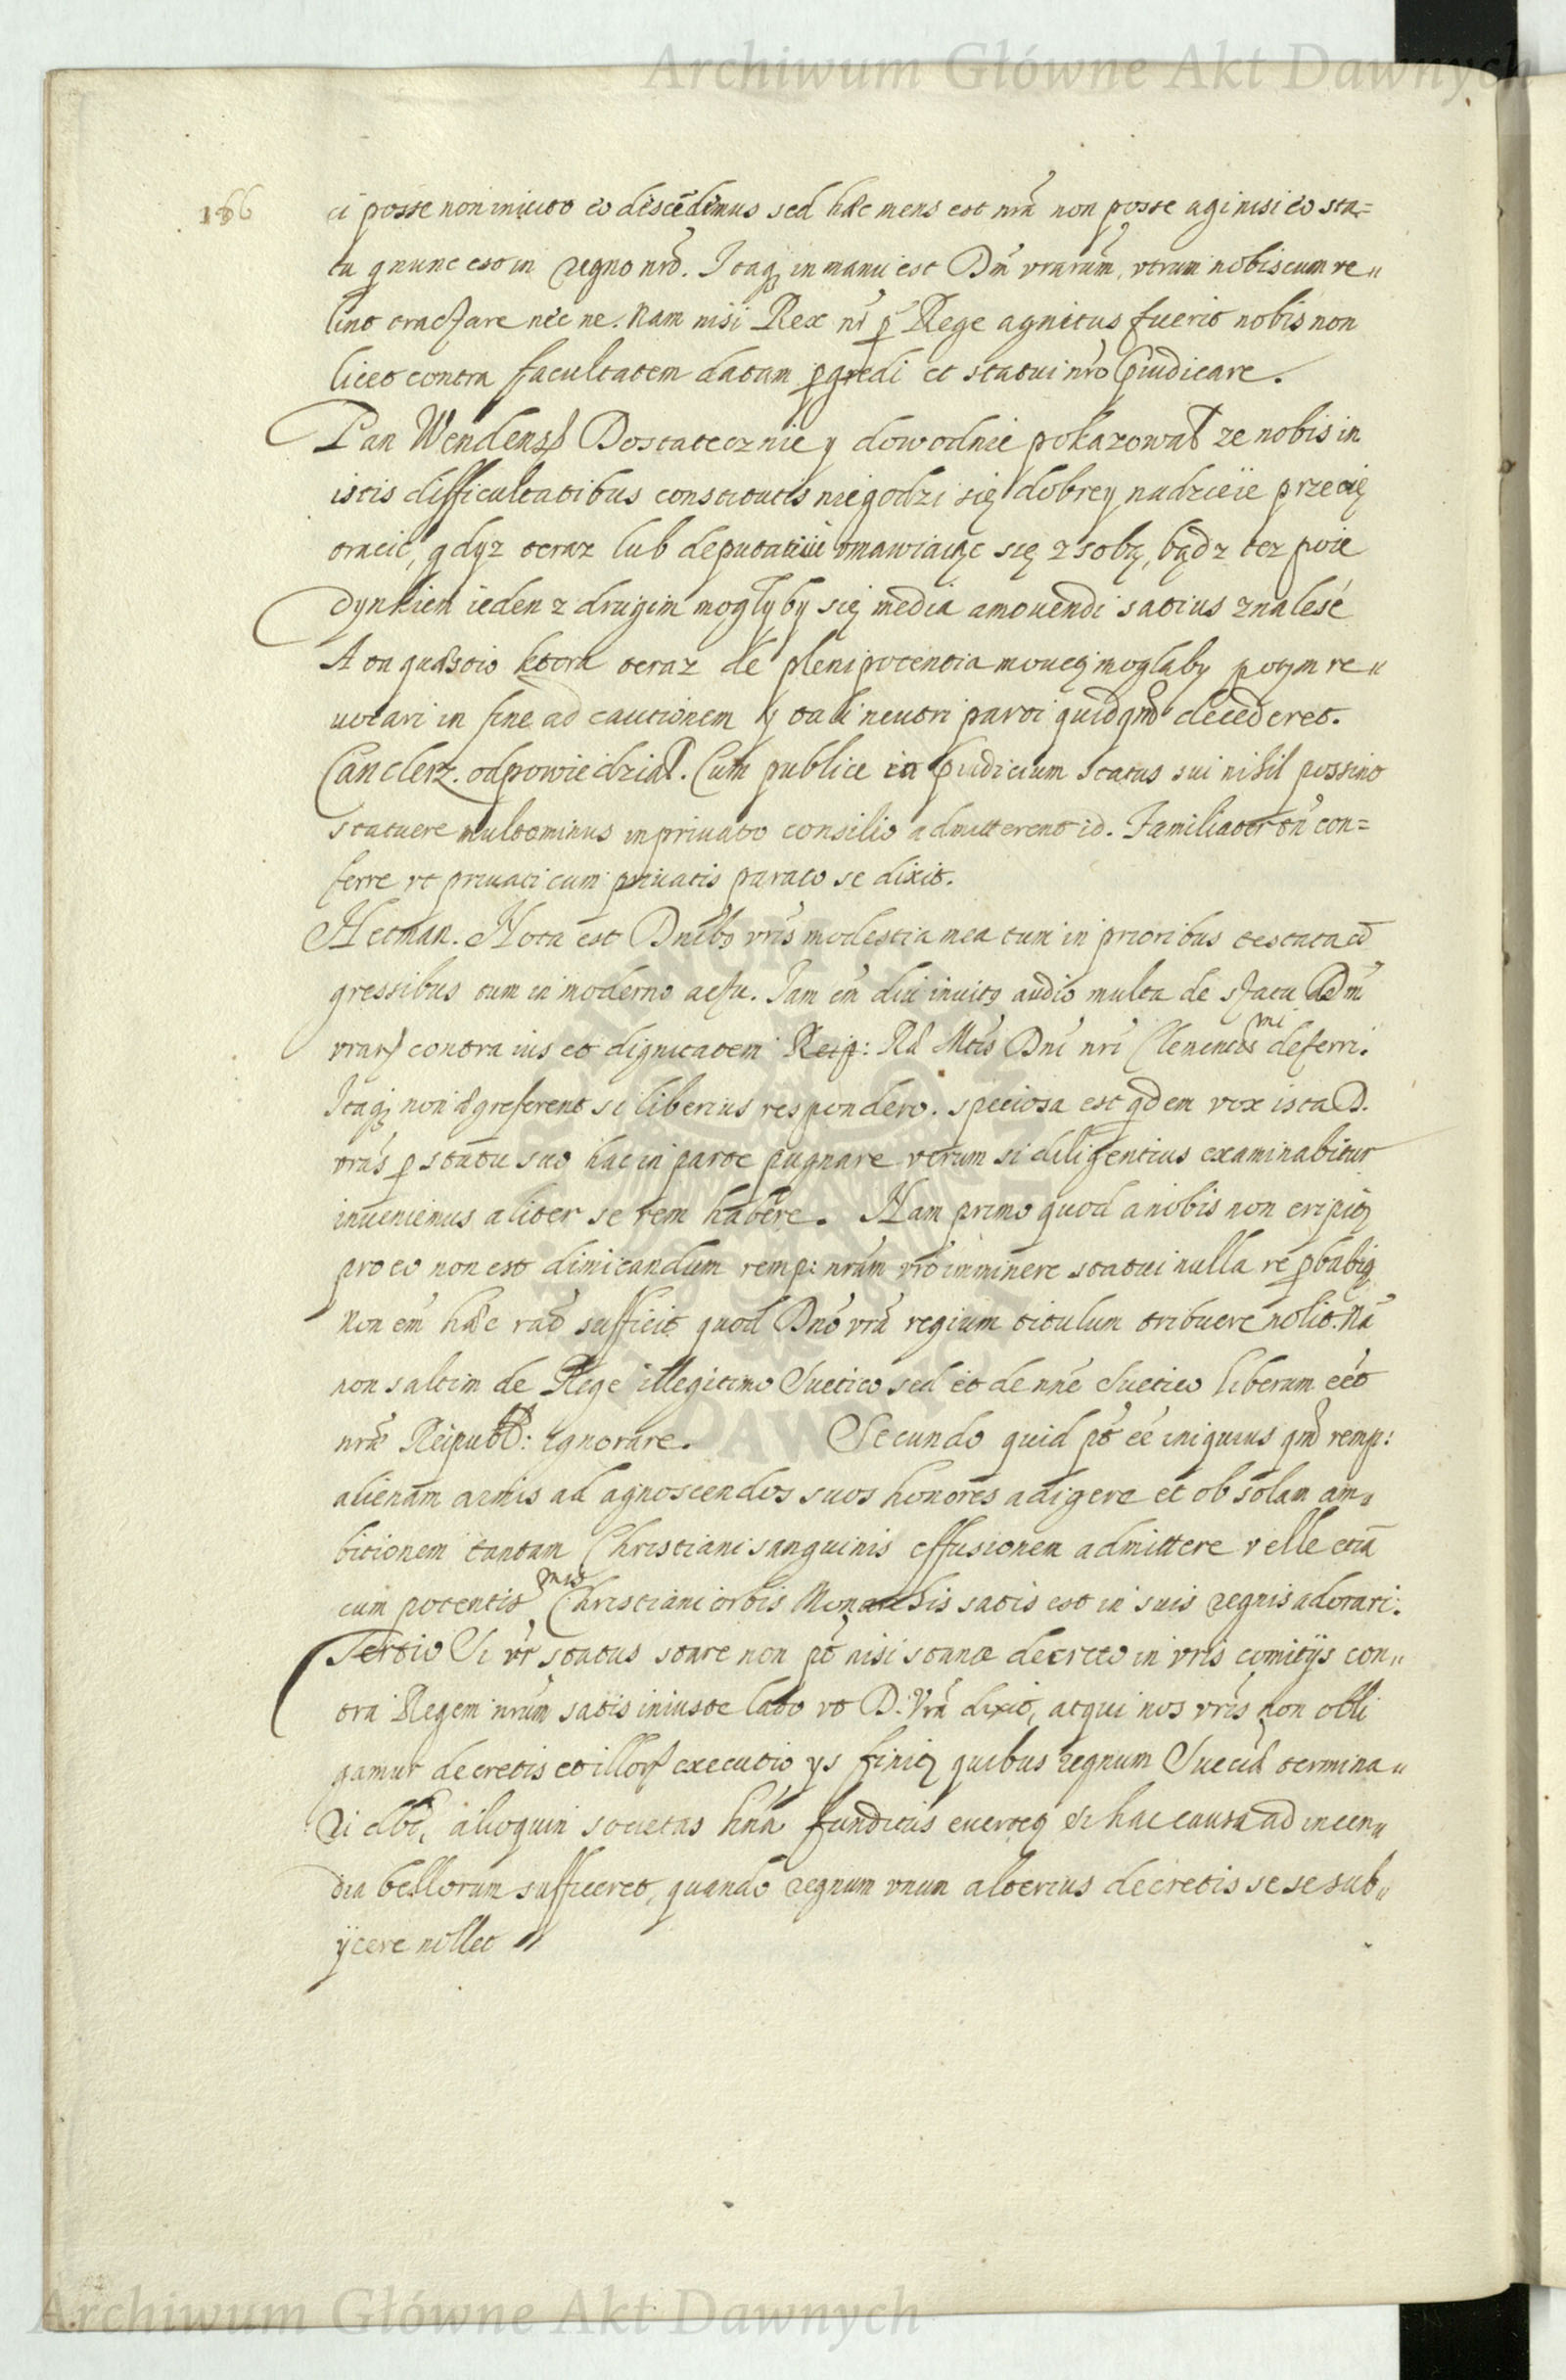 Archiwum Główne Akt Dawnych
166
ci posse non inuito eo descēdimus sed hæc mens est nrā non posse agi nisi eo sta=
tu q nunc est in regno nrō. Itaq in manu est Dm̄ vrarum, vtrum nobiscum ve„
lint tractare nec ne. Nam nisi Rex nr̄ p Rege agnitus fuerit nobis non
licet contra facultatem datam pgredi et statui nrō piudicare.
Pan Wendens Dostatecznie y dowodnie pokazował ze nobis in
istis difficultatibus constitutis niegodzi się dobrey nadzieie przecię
tracić, gdyz teraz lub deputatiue vmawiaiąc się z sobą, bądz tez poie
dynkiem ieden z drugim mogłyby się media amouendi satius znalesć
A ta quæstio ktora teraz de plenipotentia mouet mogłaby potym re„
uocari in fine ad cautionem y tak neutri parti quidqm decederet.
Canclerz. odpowiedział. Cum publice in piudicium status sui nihil possint
statuere multominus in priuato consilio admitterent id. Familiater tn̄ con=
ferre vt priuati cum priuatis parato se dixit.
Hetman. Nota est Dnīb vrīs modestia mea tum in prioribus testata cō
gressibus tum in moderno actu. Iam em̄ diu inuito audio multa de statu Dm̄
vrar contra ius et dignitatem Reip: Ræ Mtis Dnī nrī Clementis mi deferri.
Itaq non ægre ferent si liberius respondero. speciosa est qdem vox ista D.
vrās p statu suo hac in parte pugnare verum si diligentius examinabitur
inueniemus aliter se rem habere. Nam primo quod a nobis non eripit
pro eo non est dimicandum remp: nrām vrō imminere statui nulla re pbabit
Non em̄ hæc raō sufficit quod Dnō vrō regium titulum tribuere nolit. Nā
non saltim de Rege illegitimo Suetico sed et de nnē Suetico liberum eēt
nræ Reipub: ignorare. Secundo quid pōt eē iniquius qm̄ remp:
alienam armis ad agnoscendos suos honores adigere et ob solam am„
bitionem tantam Christiani sanguinis effusionem admittere velle etiā
cum potentis mis Christiani orbis Monarchis satis est in suis regnis adorari.
Tertio Si vr̄ status stare non pōt nisi stante decreto in vrīs comitijs con„
tra Regem nrum satis iniuste lato vt D. Vrā dixit, atqui nos vrīs non obli
gamur decretis et illor executio ijs finit quibus regnum Sueciæ termina„
ri dbēt, alioquin societas hnā funditus euertet si hac causa ad incen„
dia bellorum sufficeret, quando regnum vnum alterius decretis se se sub„
ijcere nollet
Archiwum Główne Akt Dawnych